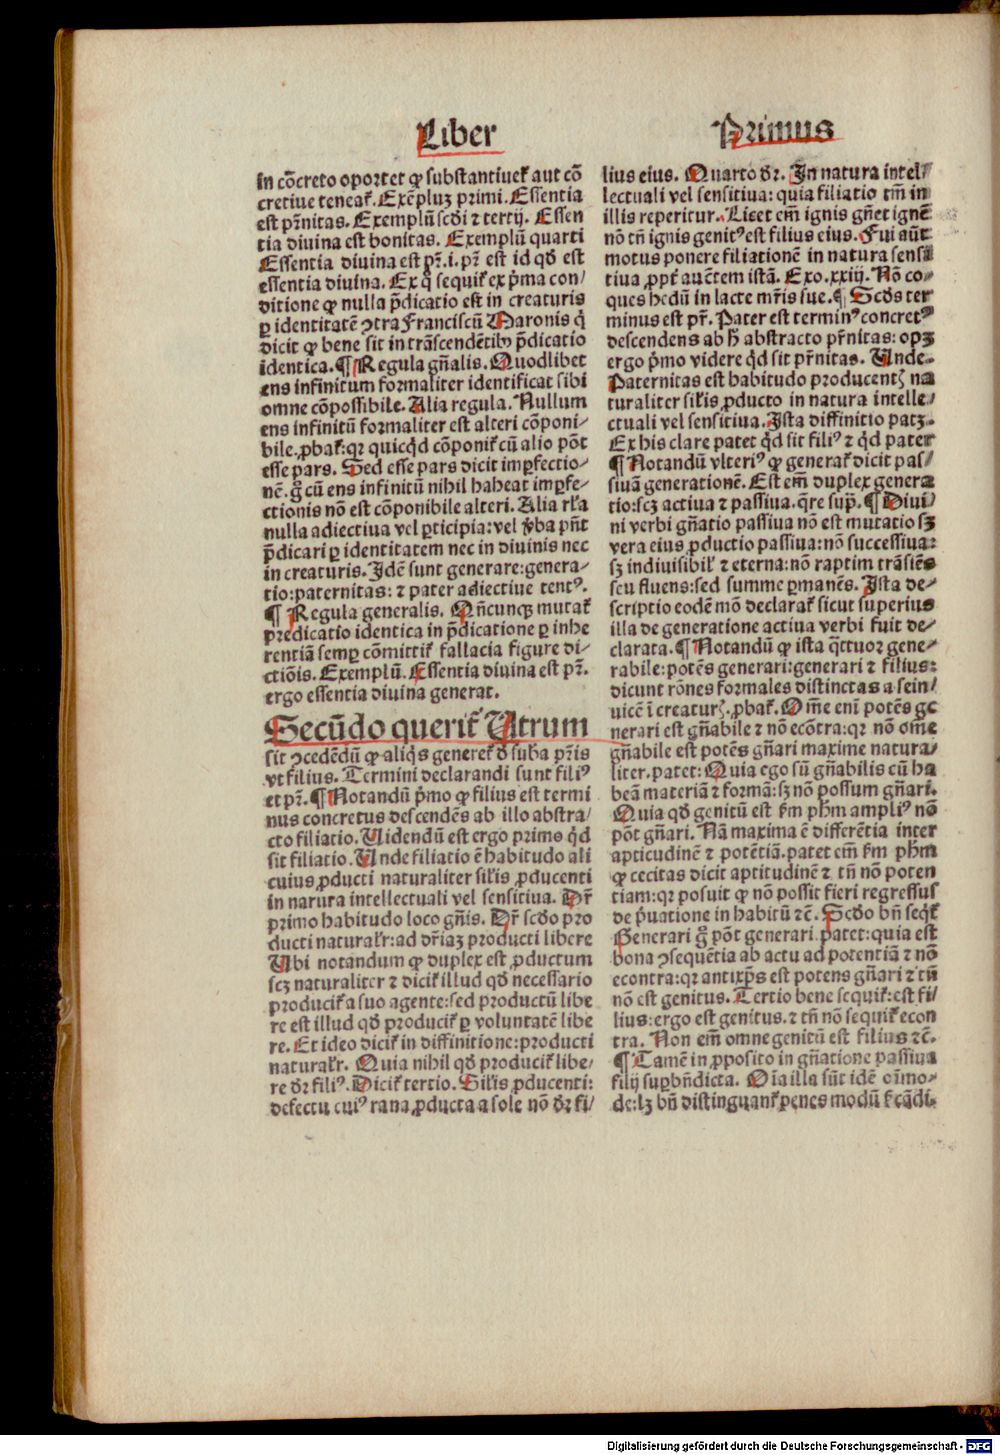 Liber
Primus
in cõcreto oportet ꝙ substantiueť aut cõ
cretiue teneať. Exẽpluꝫ primi. Essentia
est pr̃nitas. Exemplũ scďi ⁊ tertij. Essen
tia diuina est bonitas. Exemplũ quarti
Essentia diuina est pr̃.i. pr̃ est id qď est
essentia diuina. Ex q̃ sequiť ex p̃ma con⸗
ditione ꝙ nulla p̃dicatio est in creaturis
ꝑ identitatẽ ꝯtra Franciscũ Maronis q̃
dicit ꝙ bene sit in trãscendẽtibꝰ p̃dicatio
identica. ¶ Regula gñalis. Quodlibet
ens infinitum formaliter identificat sibi
omne cõpossibile. Alia regula. Nullum
ens infinitũ formaliter est alteri cõponi⸗
bile. ꝓbať: qꝛ quicq̃d cõponiť cũ alio põt
esse pars. Sed esse pars dicit imꝑfectio⸗
nẽ. g̊ cũ ens infinitũ nihil habeat imꝑfe⸗
ctionis nõ est cõponibile alteri. Alia rl̃a
nulla adiectiua vel ꝑticipia: vel v̓ba pñt
p̃dicari ꝑ identitatem nec in diuinis nec
in creaturis. Idẽ sunt generare: genera⸗
tio: paternitas: ⁊ pater adiectiue tentꝰ.
¶ Regula generalis. Qñcunqꝫ mutať
predicatio identica in p̃dicatione ꝑ inhe
rentiã semꝑ cõmittiť fallacia figure di⸗
ctiõis. Exemplũ. Essentia diuina est pr̃.
ergo essentia diuina generat.
Secũdo queriť Utrum
sit ꝯcedẽdũ ꝙ aliq̃s genereť ď sub̃a pr̃is
vt filius. Termini declarandi sunt filiꝰ
et pr̃. ¶ Notandũ p̃mo ꝙ filius est termi
nus concretus descendẽs ab illo abstra⸗
cto filiatio. Uidendũ est ergo primo q̃d
sit filiatio. Unde filiatio ẽ habitudo ali
cuius ꝓducti naturaliter sil̃is ꝓducenti
in natura intellectuali vel sensitiua. Dr̃
primo habitudo loco gñis. Dr̃ scďo pro
ducti naturalr̃: ad dr̃iaꝫ producti libere
Ubi notandum ꝙ duplex est ꝓductum
scꝫ naturaliter ⁊ diciť illud qď necessario
produciť a suo agente: sed productũ libe
re est illud qď produciť ꝑ voluntatẽ libe
re. Et ideo diciť in diffinitione: producti
naturalr̃. Quia nihil qď produciť libe⸗
re ďr filiꝰ. Diciť tertio. Sil̃is ꝓducenti:
defectu cuiꝰ rana ꝓducta a sole nõ ďr fi⸗
lius eius. Quarto ďr. In natura intel⸗
lectuali vel sensitiua: quia filiatio tm̃ in
illis reperitur. Licet em̃ ignis gñet ignẽ
nõ tñ ignis genitꝰ est filius eius. Fui aũt
motus ponere filiationẽ in natura sensi
tiua ꝓpt̓ auc̃tem istã. Exo. xxiij. Nõ co⸗
ques hedũ in lacte mr̃is sue. ¶ Scďs ter
minus est pr̃. Pater est terminꝰ concretꝰ
descendens ab h̃ abstracto pr̃nitas: opꝫ
ergo p̃mo videre q̃d sit pr̃nitas. Unde.
Paternitas est habitudo producentꝭ na
turaliter sil̃is ꝓducto in natura intelle⸗
ctuali vel sensitiua. Ista diffinitio patꝫ.
Ex his clare patet q̃d sit filiꝰ ⁊ q̃d pater
¶ Notandũ vlteriꝰ ꝙ generať dicit pas⸗
siuã generationẽ. Est em̃ duplex genera
tio: scꝫ actiua ⁊ passiua. q̃re sup̃. ¶ Diui⸗
ni verbi gñatio passiua nõ est mutatio sꝫ
vera eius ꝓductio passiua: nõ successiua:
sꝫ indiuisibil̓ ⁊ eterna: nõ raptim trãsiẽs
seu fluens: sed summe ꝑmanẽs. Ista de⸗
scriptio eodẽ mõ declarať sicut superius
illa de generatione actiua verbi fuit de⸗
clarata. ¶ Notandũ ꝙ ista q̃ttuor gene⸗
rabile: potẽs generari: generari ⁊ filius:
dicunt rõnes formales distinctas a sein⸗
uicẽ ĩ creaturꝭ. ꝓbať. Om̃e enĩ potẽs ge
nerari est gñabile ⁊ nõ ecõtra: qꝛ nõ om̃e
gñabile est potẽs gñari maxime natura⸗
liter. patet: Quia ego sũ gñabilis cũ ha
beã materiã ⁊ formã: sꝫ nõ possum gñari.
Quia qď genitũ est ẜm ph̃m ampliꝰ nõ
põt gñari. Nã maxima ẽ differẽtia inter
apticudinẽ ⁊ potẽtiã. patet em̃ ẜm ph̃m
ꝙ cecitas dicit aptitudinẽ ⁊ tñ nõ poten
tiam: qꝛ posuit ꝙ nõ possit fieri regressus
de p̃uatione in habitũ ⁊c̃. Scďo bñ seq̃ť
Generari g̊ põt generari. patet: quia est
bona ꝯsequẽtia ab actu ad potentiã ⁊ nõ
econtra: qꝛ antixp̃s est potens gñari ⁊ tñ
nõ est genitus. Tertio bene sequiť: est fi⸗
lius: ergo est genitus. ⁊ tñ nõ sequiť econ
tra. Non em̃ omne genitũ est filius ⁊c̃.
¶ Tamẽ in ꝓposito in gñatione passiua
filij suꝑbñdicta. Oĩa illa sũt idẽ oĩmo⸗
de: lꝫ bñ distinguanť penes modũ ẜcãdi.
Digitalisierung gefördert durch die Deutsche Forschungsgemeinschaft - DFG